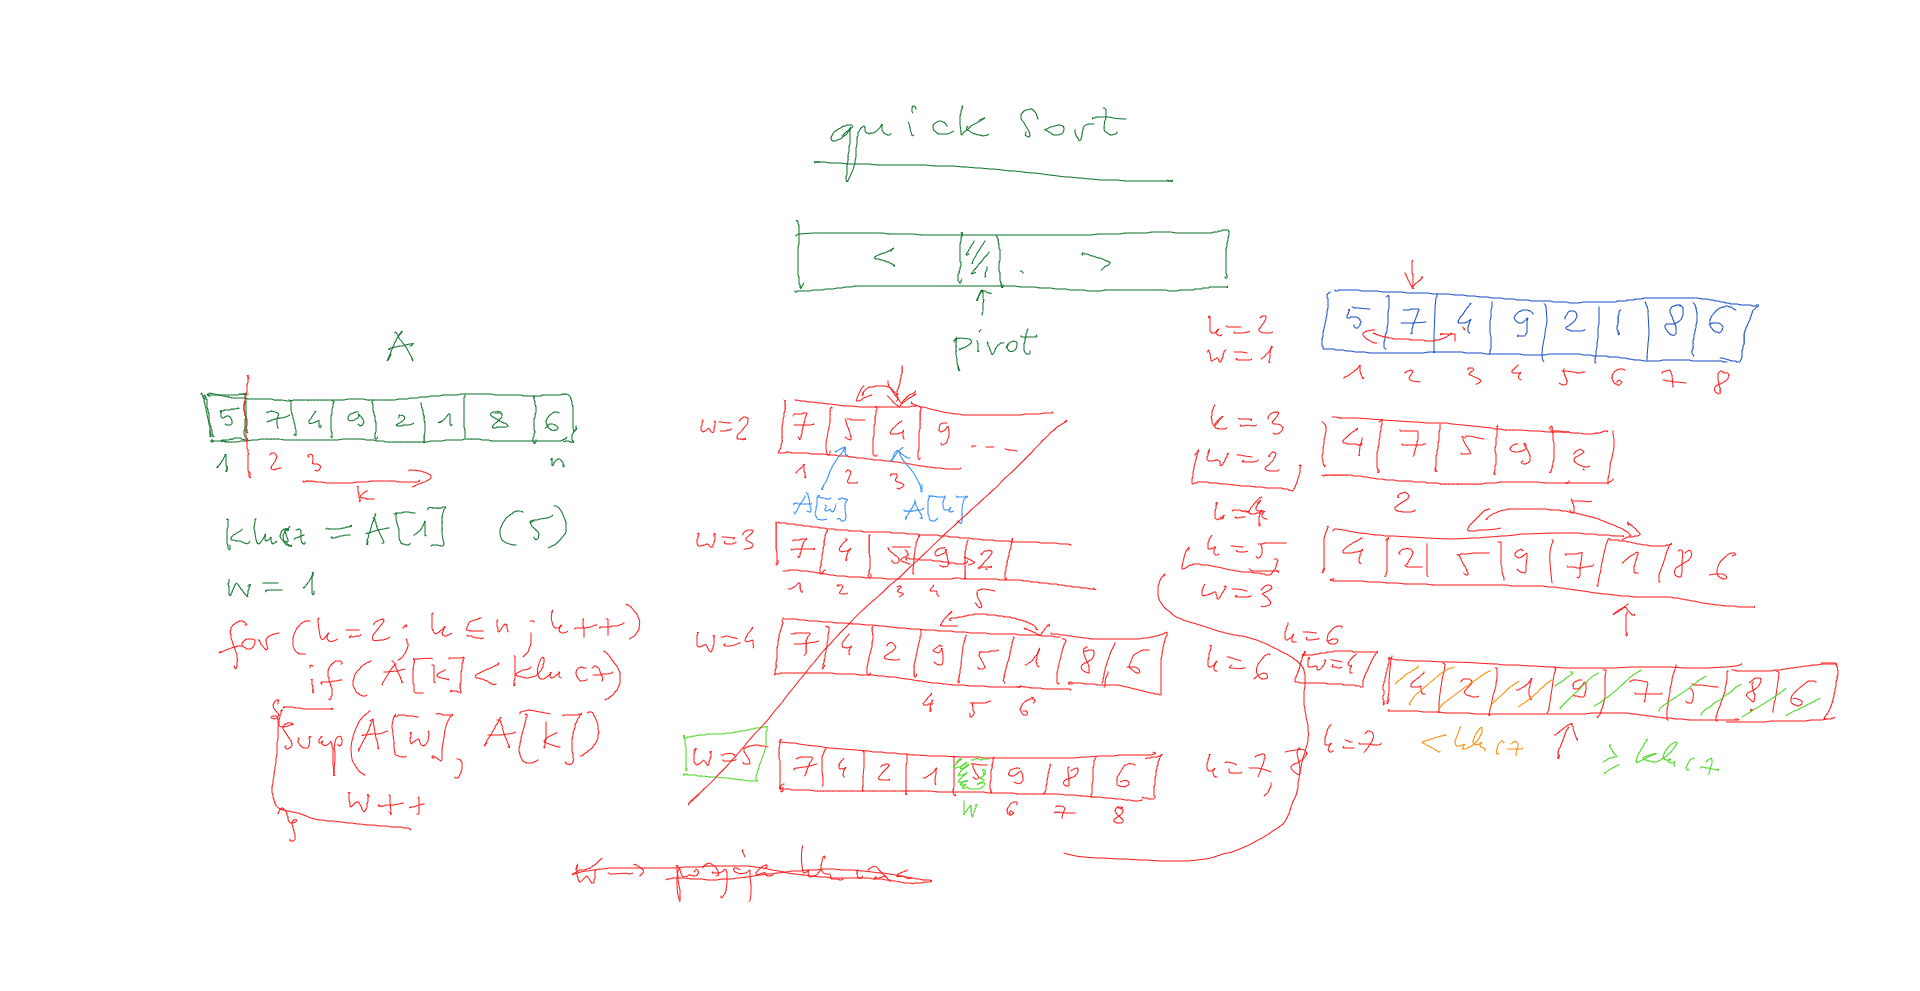 quick sort
< . >
pivot
A
5 7 4 9 2 1 8 6
1 2 3 n
k
klucz = A[1] (5)
w = 1
for (k=2; k≤n; k++)
if (A[k] < klucz)
{
Swap(A[w], A[k])
w++
}
w=2
7 5 4 9 ...
1 2 3
A[w] A[k]
w=3
7 4 5 9 2
1 2 3 4 5
w=4
7 4 2 9 5 1 8 6
4 5 6
k=6
w=5
7 4 2 1 5 9 8 6
w 6 7 8
k=7, 8
w → pozycja klucza
k=2
w=1
5 7 4 9 2 1 8 6
1 2 3 4 5 6 7 8
k=3
w=2
4 7 5 9 2
2 5
k=4
k=5
w=3
4 2 5 9 7 1 8 6
k=6
w=4
4 2 1 9 7 5 8 6
k=7
< klucz
≥ klucz